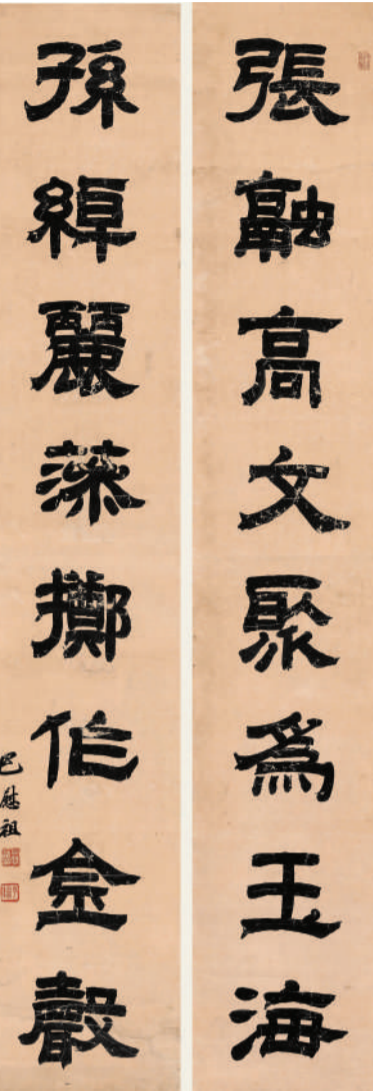 張融高文聚爲玉海
孫綽麗藻擲作金聲
巴慰祖